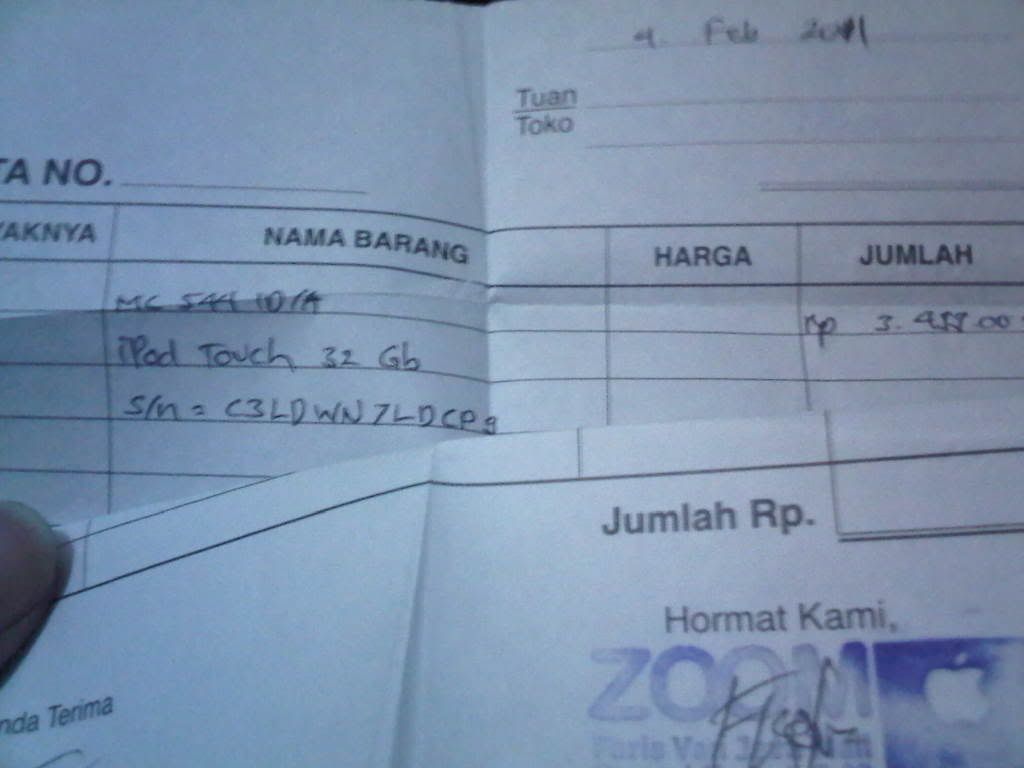 4. Feb 2011
Tuan
Toko
TA NO.
YAKNYA NAMA BARANG HARGA JUMLAH
MC 544 ID/A
Rp
iPod Touch 32 Gb
S/n = C3LDWN7LDCP9
Jumlah Rp.
Hormat Kami,
ZOOM
nda Terima
Paris Van